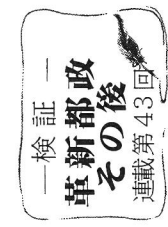 ―検証―
革新都政
その後
連載第43回